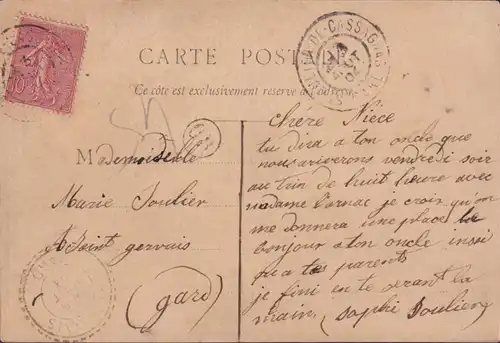 CARTE POSTALE
Ce côté est exclusivement réservé à l'adresse
DE-CASSAGNAS
10
Mademoiselle
Marie Soulier
A Saint gervais
(gard)
chère Niece
tu dira a ton oncle que
nous ariverons vendredi soir
au trin de huit heure avec
madame larnac je crois qu'on
me donnera une place le
bonjour a ton oncle insi
qu'a tes parents
je fini en te serant la
main, (Sophi Soulier)